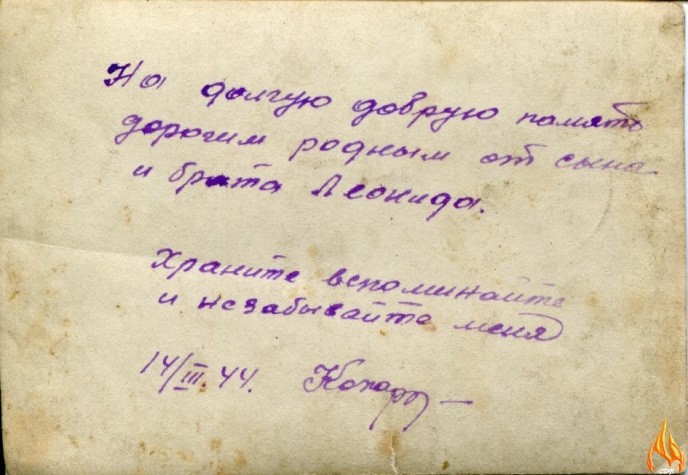 На долгую добрую память
дорогим родным от сына
и брата Леонида.
Храните вспоминайте
и незабывайте меня
14/III.44.